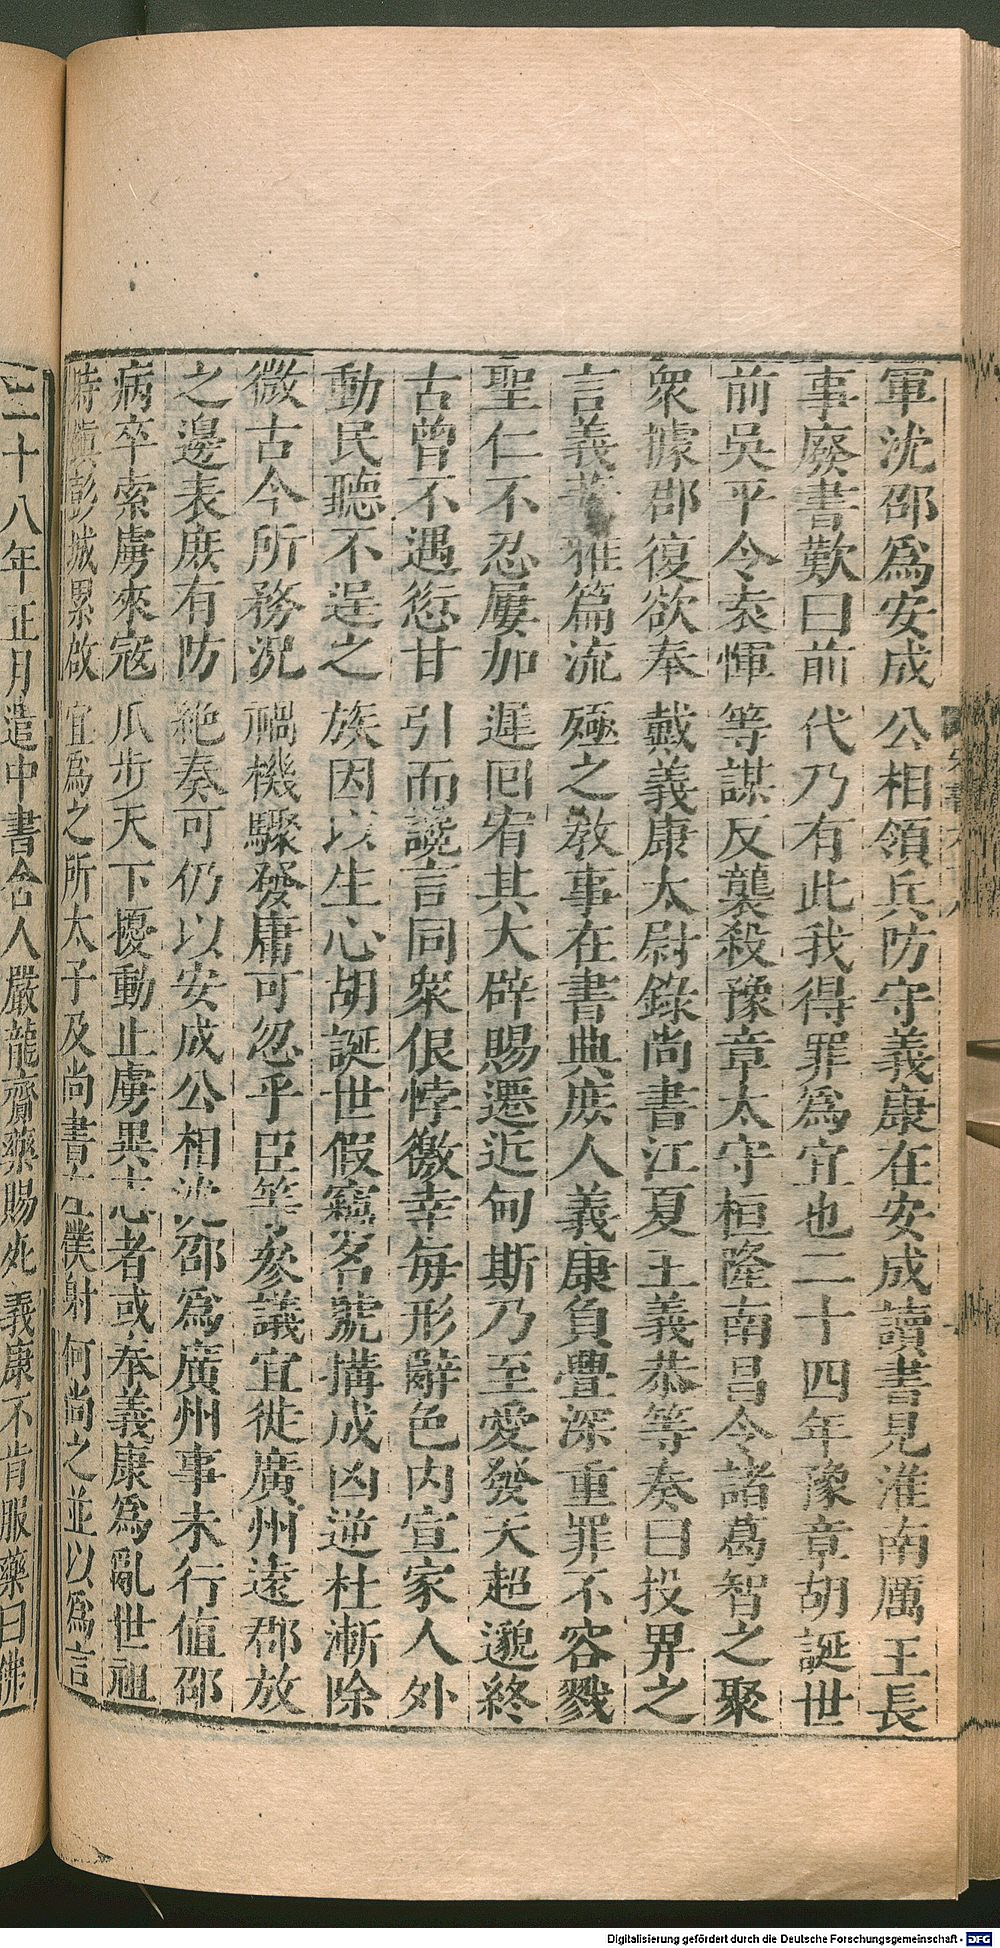 軍沈邵爲安成公相領兵防守義康在安成讀書見淮南厲王長
事廢書歎曰前代乃有此我得罪爲宜也二十四年豫章胡誕世
前吳平令袁惲等謀反襲殺豫章太守桓隆南昌令諸葛智之聚
衆據郡復欲奉戴義康太尉錄尚書江夏王義恭等奏曰投畀之
言義著雅篇流殛之敎事在書典庶人義康負舋深重罪不容戮
聖仁不忍屢加遲回宥其大辟賜遷近甸斯乃至愛發天超邈終
古曾不遇愆甘引而讒言同衆佷悖徼幸每形辭色内宣家人外
動民聽不逞之族因以生心胡誕世假竊名號搆成凶逆杜漸除
微古今所務況禍機驟發庸可忽乎臣等參議宜徙廣州遠郡放
之邊表庶有防絶奏可仍以安成公相沈邵爲廣州事未行值邵
病卒索虜來寇瓜步天下擾動止虜異志者或奉義康爲亂世祖
時鎭彭城累啟宜爲之所太子及尚書左僕射何尚之並以爲言
二十八年正月遣中書舍人嚴龍齎藥賜死義康不肯服藥曰佛
Digitalisierung gefördert durch die Deutsche Forschungsgemeinschaft - DFG